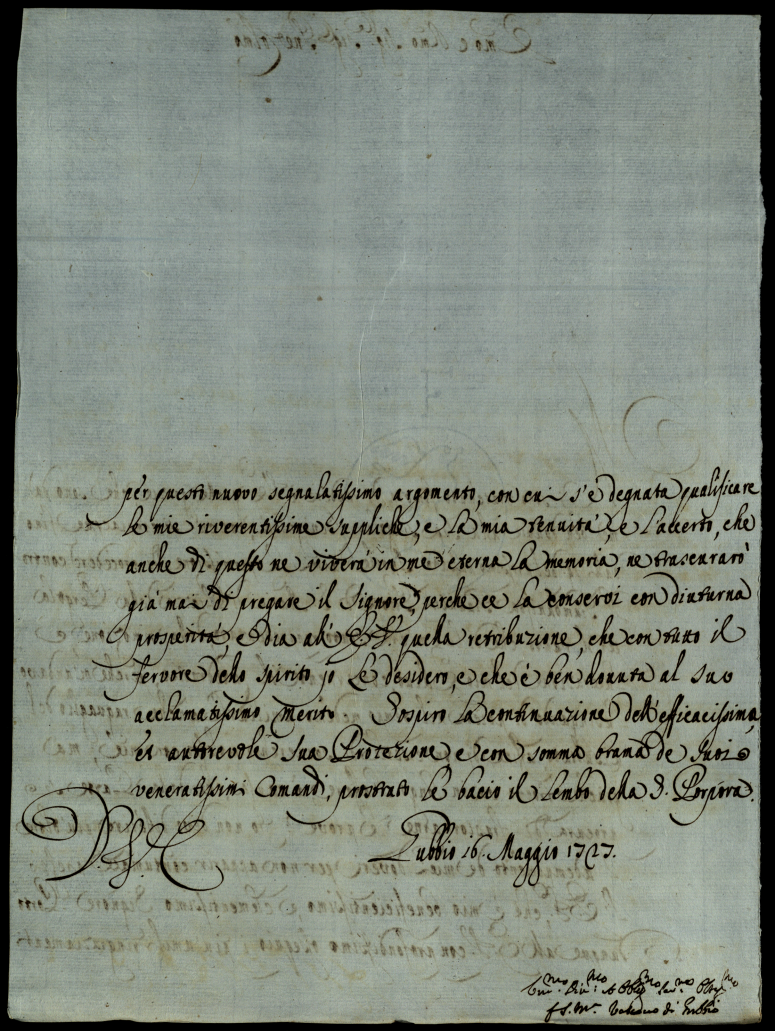 per questo nuovo segnalatissimo argomento, con cui s'è degnata qualificare
le mie riverentissime suppliche, e la mia tenuità, e l'accerto, che
anche di questo ne viverà in me eterna la memoria, ne trascurarò
già mai di pregare il Signore, perche ce la conservi con diuturna
prosperità, e dia all' E. V. quella retribuzione, che con tutto il
fervore dello spirito io Le desidero, e che è ben dovuta al suo
acclamatissimo merito. Sospiro la continuazione dell'efficacissima,
et autorevole sua Protezione, e con somma brama de suoi
veneratissimi Comandi, prostrato le bacio il lembo della S. Porpora.
Gubbio 16. Maggio 1727.
V. E.
f. S. M. Vescovo di Gubbio